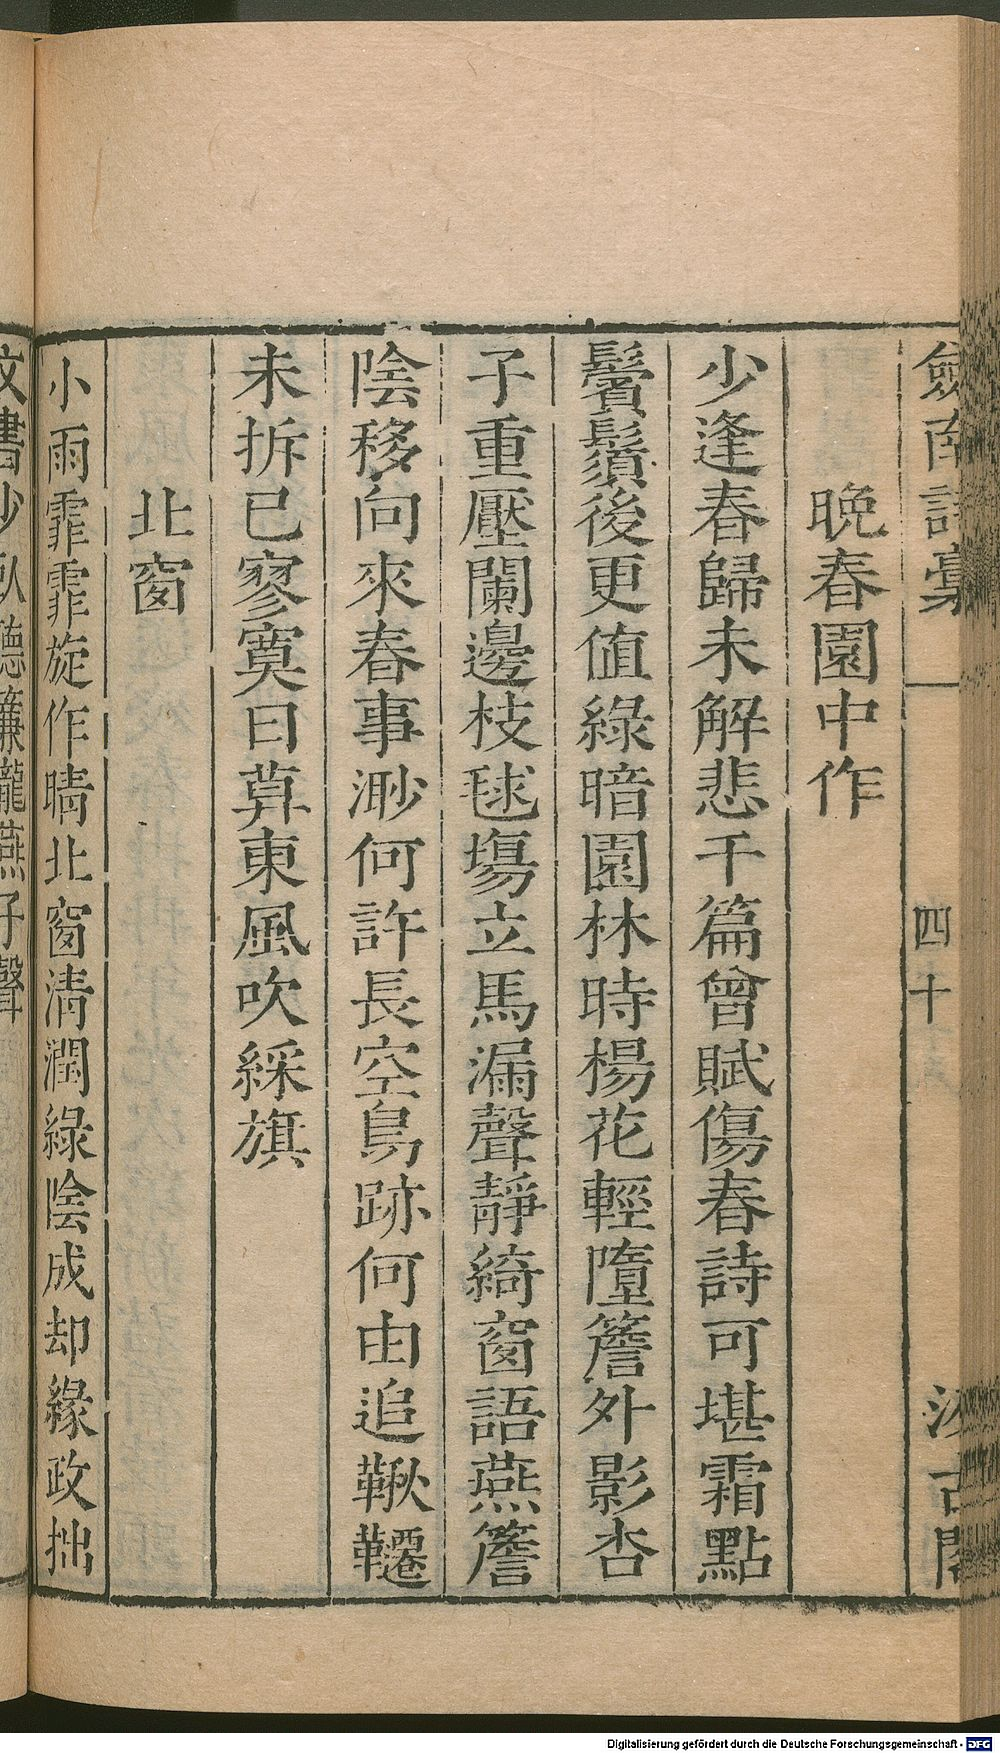 劍南詩稾 四十 汲古閣
晚春園中作
少逢春歸未解悲千篇曾賦傷春詩可堪霜點
鬢鬚後更値綠暗園林時楊花輕墮簷外影杏
子重壓闌邊枝毬場立馬漏聲靜綺窗語燕簷
陰移向來春事渺何許長空鳥跡何由追鞦韆
未拆已寥寞日莫東風吹綵旗
北窗
小雨霏霏旋作晴北窗清潤綠陰成却緣政拙
文書少臥聽簾櫳燕子聲
Digitalisierung gefördert durch die Deutsche Forschungsgemeinschaft - DFG